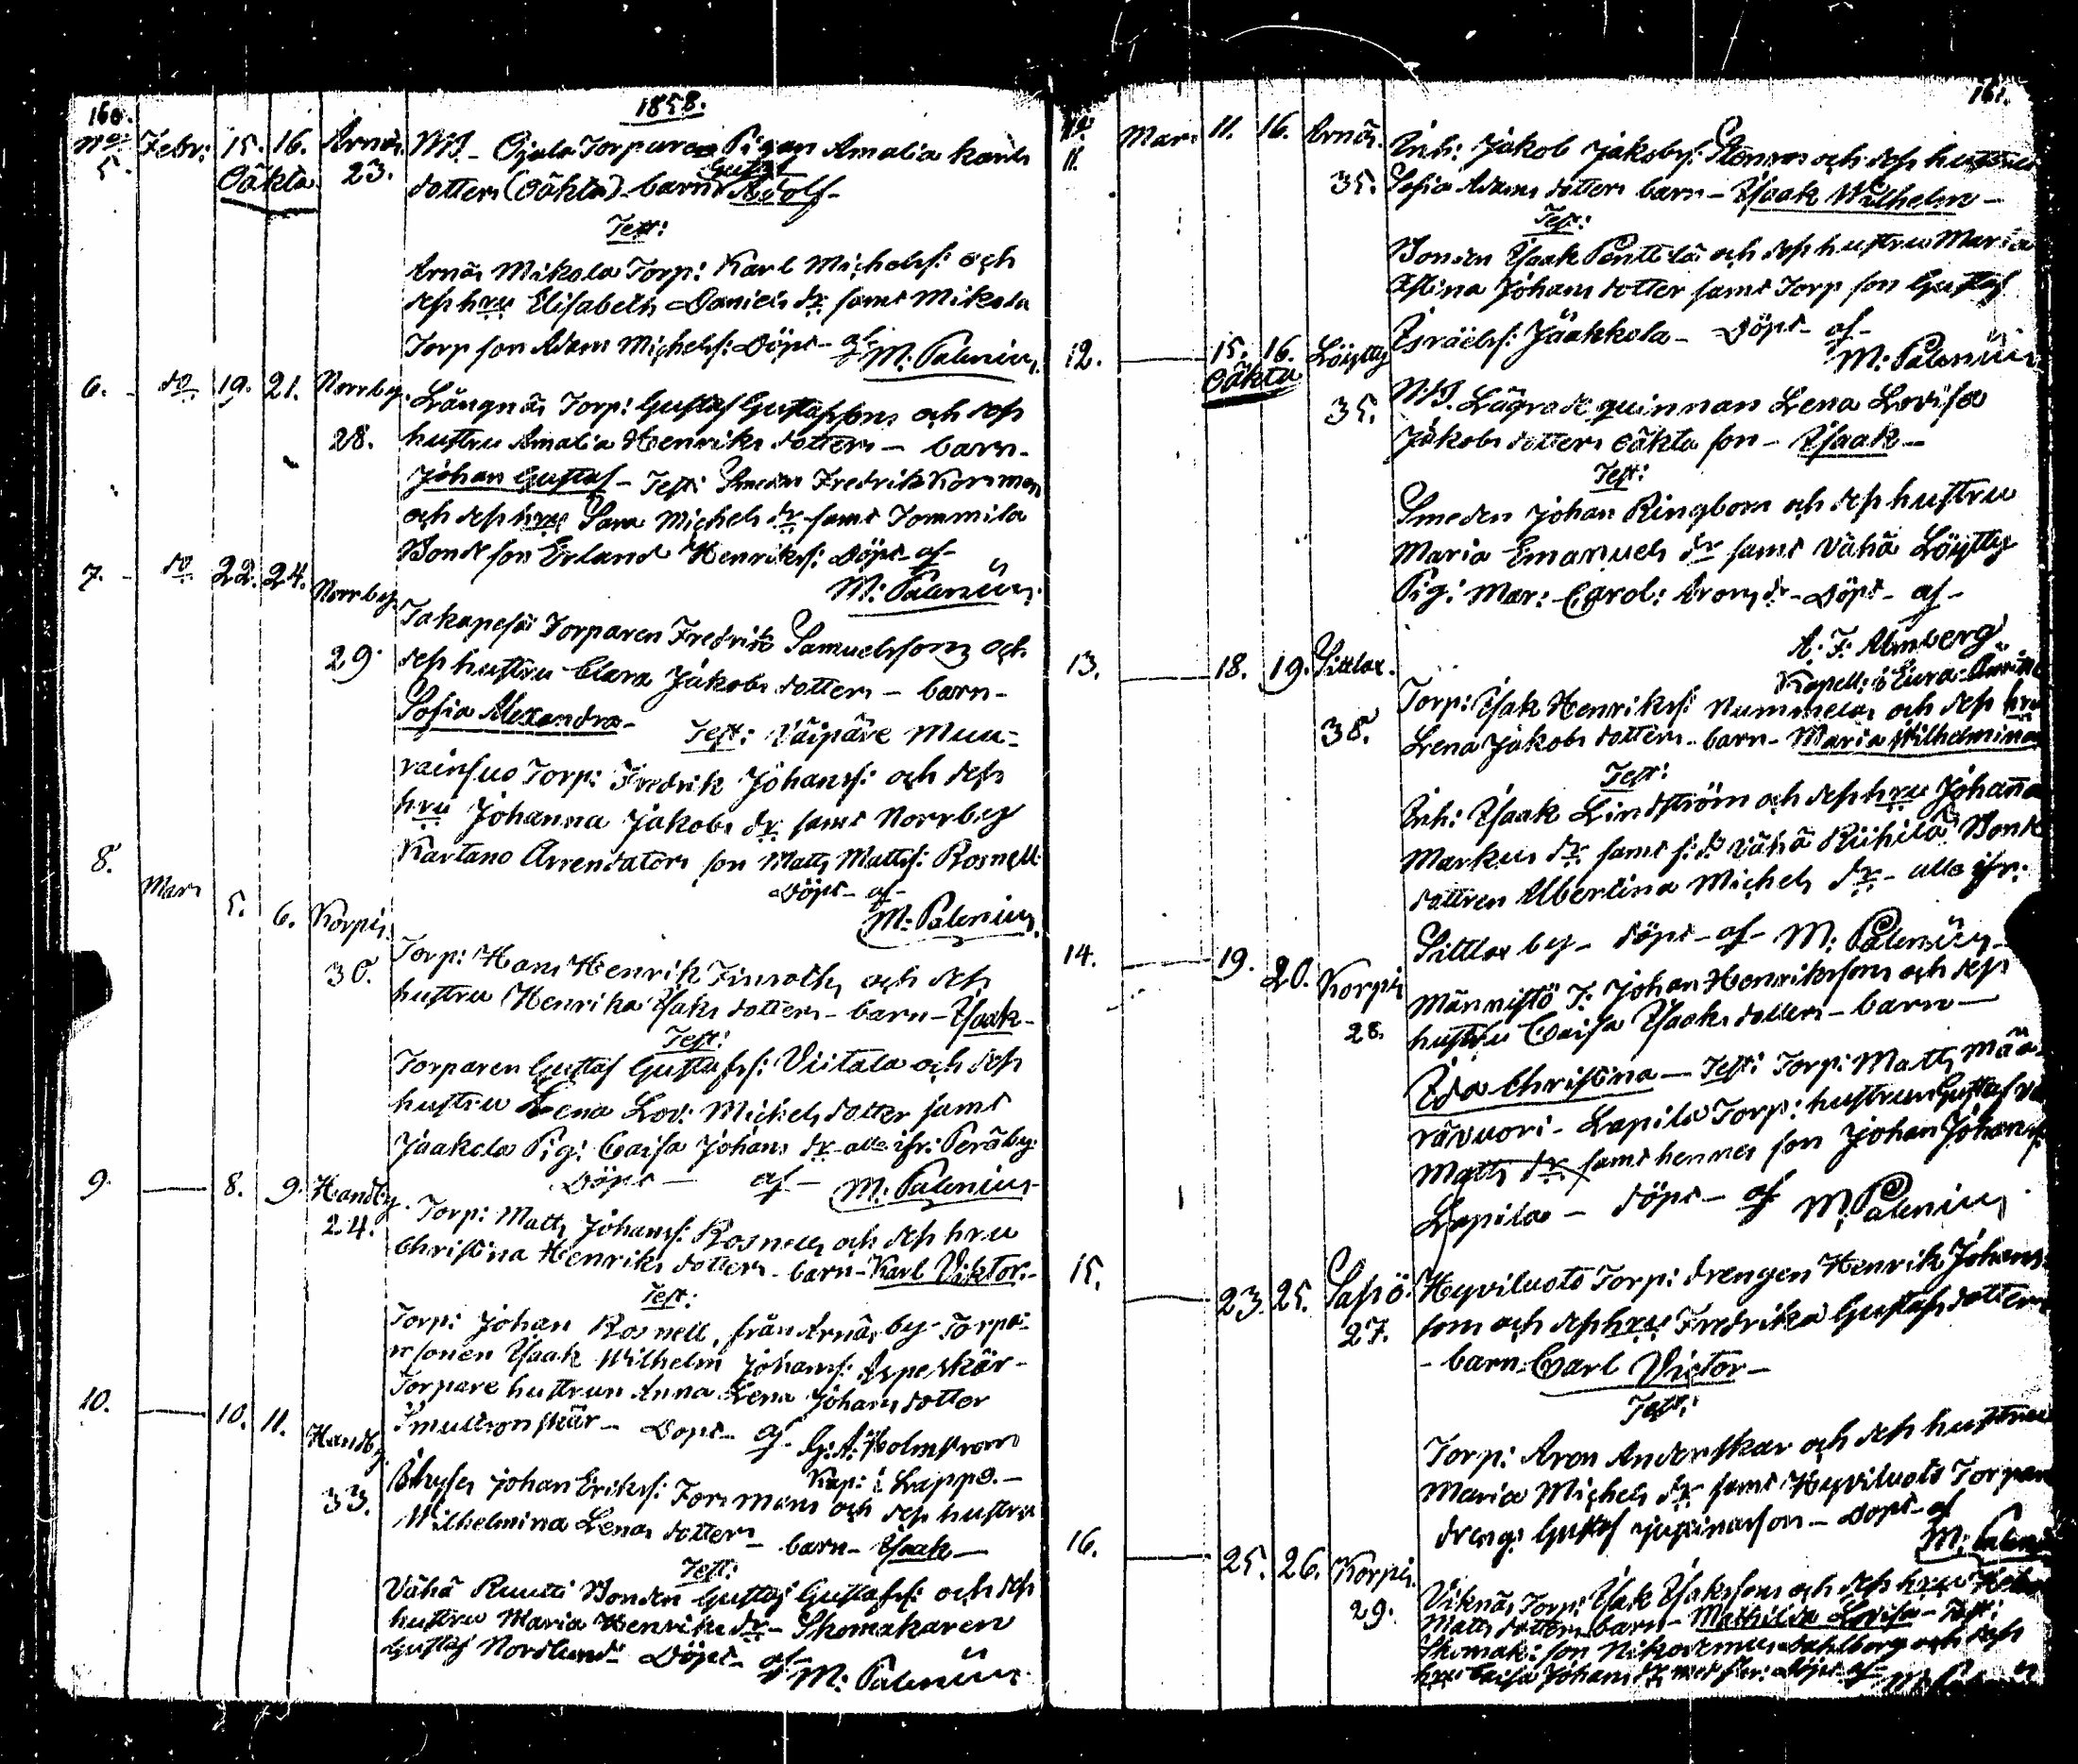 160.
1858.
No 5. Febr: 15. 16. Arnäs. N.B. Ojala Torparen Pigan Amalia Karls
Oäkta 23. dotters (Oäkta) barn Gustaf Adolf
Test:
Arnäs Mikola Torp: Karl Michelss: och
dess hru Elisabeth Daniels dr samt Mikola
Torp son Adam Michelss: Döpt af M: Palenius
6. do 19. 21. Norrby. Långnäs Torp: Gustaf Gustafssons och dess
28. hustru Amalia Henriks dotters – barn –
Johan Gustaf – Test: Smeden Fredrik
och dess hru Sara Michels dr samt Tommila
Bonde son Erland Henrikss: Döpt af
M: Palenius
7. do 22. 24. Norrby Torparen Fredrik Samuelssons och
29. dess hustru Clara Jakobs dotters – barn –
Sofia Alexandra – Test: Väipäre Muu-
rainsuo Torp: Fredrik Johanss: och dess
hru Johanna Jakobs dr samt Norrby
Kartano Arrendators son Matts Mattss: Rosnell
Döpt af
M: Palenius
8. Mars 5. 6. Korpis. Torp: Hans Henrik och dess
30. hustru Henrika Isaks dotters – barn – Isaak –
Test:
Torparen Gustaf Gustafss: Viitala och dess
hustru Lena Lov: Michels dotter samt
Jaakola Pig: Caisa Johans dr alla ifr: Peräby
Döpt – af – M: Palenius
9. 8. 9. Handby. Torp: Matts Johanss: Rosnells och dess hru
24. Christina Henriks dotters – barn – Karl Viktor –
Test:
Torp: Johan Rosnell, från Arnäs by Torpa-
re sonen Isaak Wilhelm Johanss: Aspeskär –
Torpare hustrun Anna Lena Johans dotter
Smultronskär – Döpt af G: A: Holmstrom
Kap: i Lappo. –
10. 10. 11. Handby. Johan Erikss: Forsmans och dess hustru
33. Wilhelmina Lenas dotters – barn – Isaak –
Test:
Vähä Ruuti Bonden Gustaf Gustafss: och dess
hustru Maria Henriks dr – Skomakaren
Gustaf Nordlund Döpt af
M: Palenius
161.
No 11. Mars 11. 16. Arnäs. Inh: Jakob Jakobss: Stenroos och dess hustrus
35. Sofia Adams dotters barn – Isaak Wilhelm –
Test:
Bonden Isaak Penttilä och dess hustru Maria
Stina Johans dotter samt Torp son Gustaf
Israelss: Jaakkola – Döpt af
M: Palenius
12. 15. 16. Löytty N.B. Lägrade qvinnan Lena Lovisa
Oäkta 35. Jakobs dotters oäkta son – Isaak –
Test:
Smeden Johan Ringbom och dess hustru
Maria Emanuels dr samt Vähä Löytty
Pig: Mar: Carol: Arons dr – Döpt – af –
A. F. Almberg
Kapell: i Eura
13. 18. 19. Sittlax. Torp: Isak Henrikss: Nummelas och dess hru
38. Lena Jakobs dotters – barn – Maria Wilhelmina
Test:
Inh: Isaak Lindström och dess hru Johanna
Markus dr samt Vähä Riihilä Bonde
dottren Albertina Michels dr – alla ifr:
Sittlax by – döpt – af – M: Palenius
14. 19. 20. Korpis Männistö T: Johan Henrikssons och dess
28. hustru Caisa Isaaks dotters – barn –
Ida Christina – Test: Torp: Matts Mää-
rävuori – Lapila Torp: hustrun
Matts dr samt hennes son Johan Johanss
Lapila – döpt – af M. Palenius
15. 23. 25. Sassö. Hyviluoto Torp: drengen Henrik Johans
27. sons och dess hru Fredrika Gustafs dotters
– barn – Carl Victor –
Test:
Torp: Aron Anderskär och dess hustru
Maria Michels dr samt Hyviluoto Torpare
dreng: Gustaf – Döpt – af
M: Palenius
16. 25. 26. Korpis. Viknäs Torp: Isak Isakssons och dess hru
29. Matts dotters barn – Mathilda Lovisa – Test:
Skomak: son Nikodemus Dahlborg och dess
hru Caisa Johans dr döpt af M: Palenius